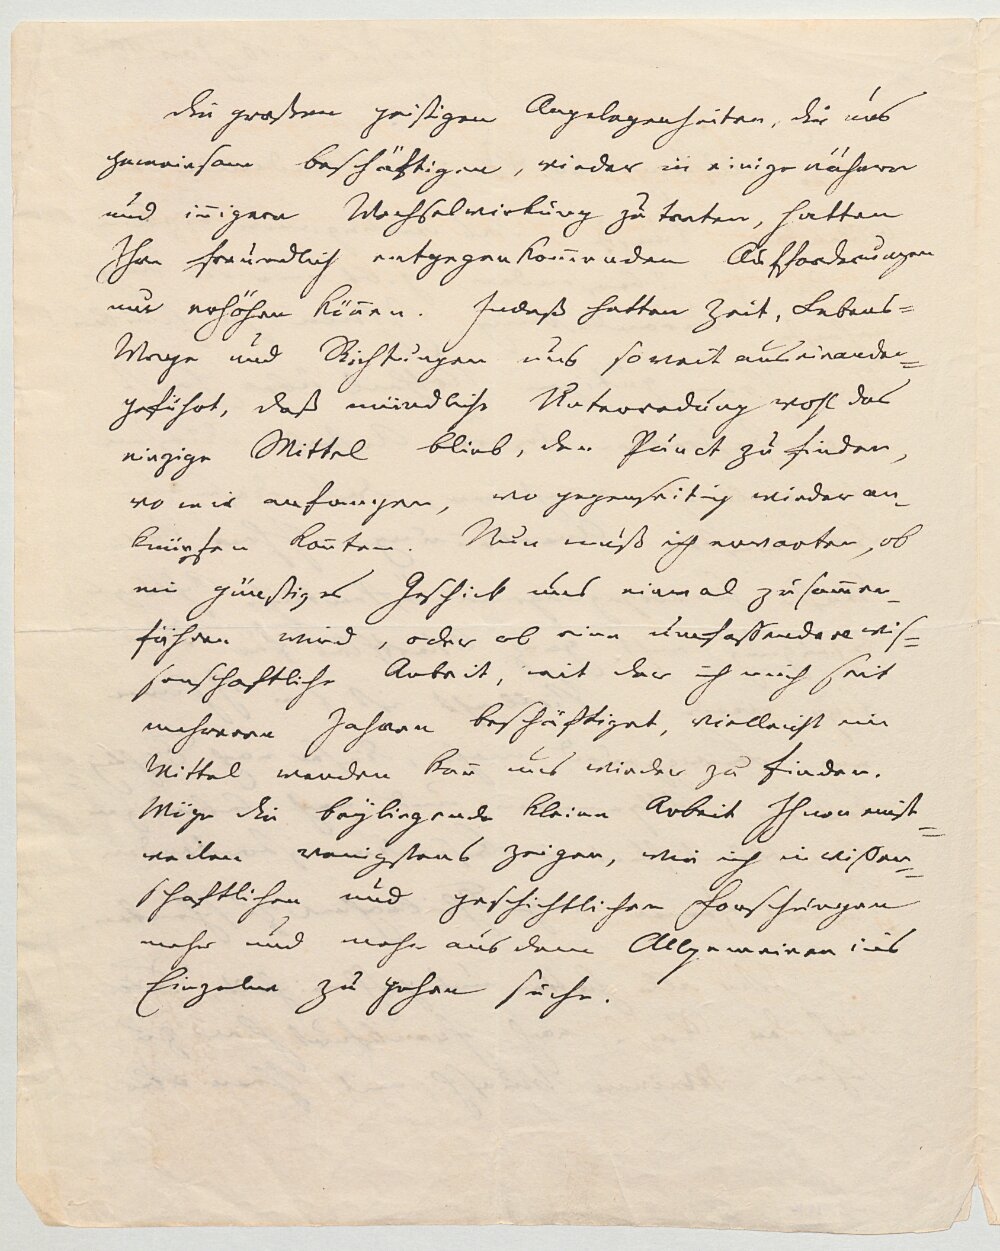 die großen geistigen Angelegenheiten, die uns
gemeinsam beschäftigen, wieder in einige nähere
und iñigere Wechselwirkung zu treten, hatten
Ihre freundlich entgegenkom̅enden Aufforderungen
nur erhöhen kön̅en. Indeß hatten Zeit, Lebens=
Wege und Richtungen uns soweit auseinander=
geführt, daß mündliche Unterredung wohl das
einzige Mittel blieb, den Punct zu finden,
wo wir anfangen, wo gegenseitig wieder an-
knüpfen kon̅ten. Nun muß ich erwarten, ob
ein günstiges Geschick uns einmal zusam̅en-
führen wird, oder ob eine umfassendere wis=
senschaftliche Arbeit, mit der ich mich seit
mehreren Jahren beschäftiget, vielleicht ein
Mittel werden kan̅ uns wieder zu finden.
Möge die beÿliegende kleine Arbeit Ihnen einst=
weilen wenigstens zeigen, wie ich in wissen=
schaftlichen und geschichtlichen Forschungen
mehr und mehr aus dem Allgemeinen ins
Einzelne zu gehen suche.